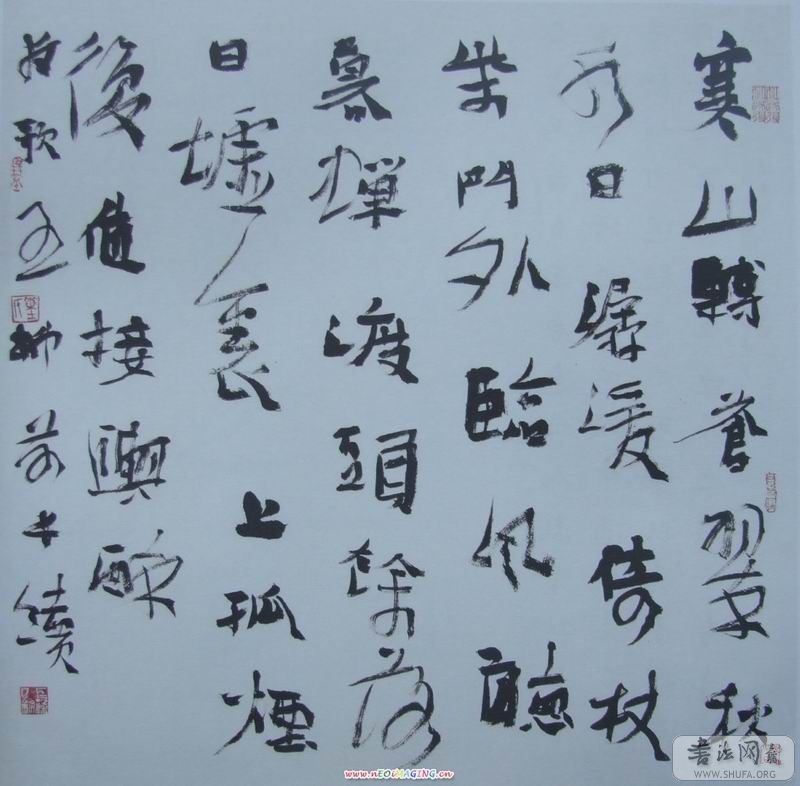 寒山轉蒼翠秋
水日潺湲倚杖
柴門外臨風聽
暮蟬渡頭餘落
日墟裏上孤煙
復值接輿醉
狂歌五柳前
書法网
WWW.SHUFA.ORG
www.nEOiMAGiNG.cn